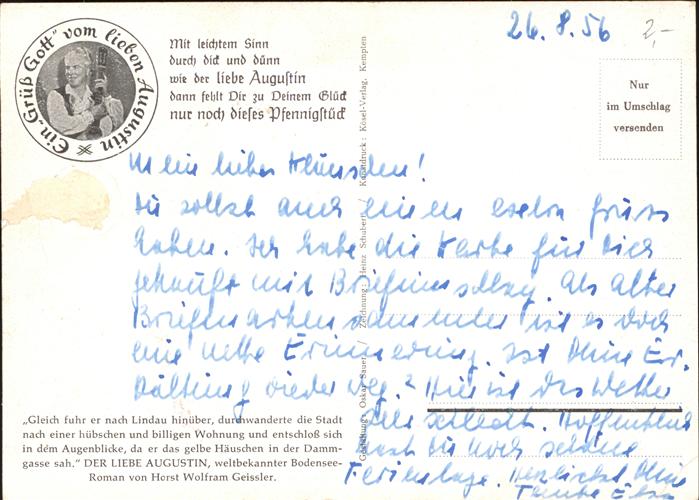 26.8.56
2,-
„Ein „Grüß Gott" vom lieben Augustin
Mit leichtem Sinn
durch dick und dünn
wie der liebe Augustin
dann fehlt Dir zu Deinem Glück
nur noch dieses Pfennigstück
Nur
im Umschlag
versenden
Gestaltung: Oskar Sauer / Zeichnung: Heinz Schubert / Kunstdruck: Kösel-Verlag, Kempten
Mein lieber
Du sollst auch einen extra Gruss
haben. Ich habe die Karte für Dich
gekauft mit
Briefmarkensammler ist es doch
eine nette Erinnerung. Ist Deine Er-
kältung wieder weg? Hier ist das Wetter
sehr schlecht. Hoffentlich
hast Du noch schöne
Ferientage. Herzlichst Deine
Tante
„Gleich fuhr er nach Lindau hinüber, durchwanderte die Stadt
nach einer hübschen und billigen Wohnung und entschloß sich
in dem Augenblicke, da er das gelbe Häuschen in der Damm-
gasse sah." DER LIEBE AUGUSTIN, weltbekannter Bodensee-
Roman von Horst Wolfram Geissler.